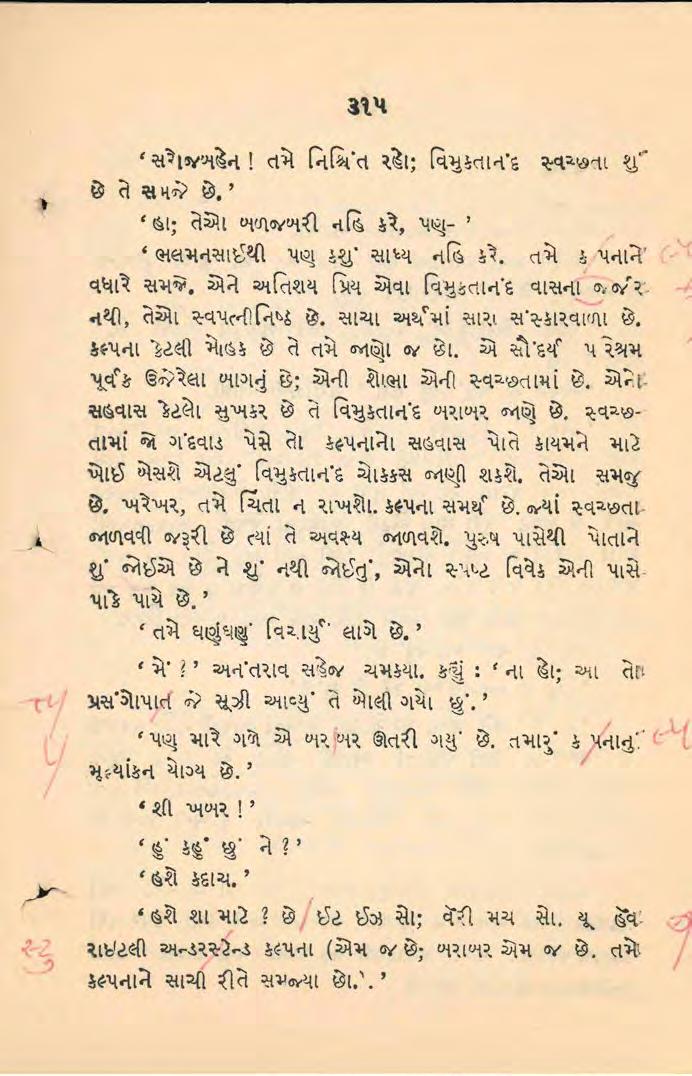 ૩૧૫
‘ સરોજબહેન ! તમે નિશ્ચિંત રહો; વિમુકતાનંદ સ્વચ્છતા શું
છે તે સમજે છે. ’
‘ હા; તેઓ બળજબરી નહિ કરે, પણ- ’
‘ ભલમનસાઈથી પણ કશું સાધ્ય નહિ કરે. તમે ક પનાને
વધારે સમજો. એને અતિશય પ્રિય એવા વિમુકતાનંદ વાસના જર્જર
નથી, તેઓ સ્વપત્નીનિષ્ઠ છે. સાચા અર્થમાં સારા સંસ્કારવાળા છે.
કલ્પના કેટલી મોહક છે તે તમે જાણો જ છો. એ સૌંદર્ય પ રેશ્રમ
પૂર્વક ઉજેરેલા બાગનું છે; એની શોભા એની સ્વચ્છતામાં છે. એનો
સહવાસ કેટલો સુખકર છે તે વિમુકતાનંદ બરાબર જાણે છે. સ્વચ્છ-
તામાં જો ગંદવાડ પેસે તો કલ્પનાનો સહવાસ પોતે કાયમને માટે
ખોઈ બેસશે એટલું વિમુકતાનંદ ચોકકસ જાણી શકશે. તેઓ સમજુ
છે. ખરેખર, તમે ચિંતા ન રાખશો. કલ્પના સમર્થ છે. જ્યાં સ્વચ્છતા
જાળવવી જરૂરી છે ત્યાં તે અવશ્ય જાળવશે. પુરુષ પાસેથી પોતાને
શું જોઈએ છે ને શું નથી જોઈતું, એનો સ્પષ્ટ વિવેક એની પાસે
પાકે પાયે છે. ’
‘ તમે ઘણુંઘણું વિચાર્યું લાગે છે. ’
‘ મેં ? ’ અનંતરાવ સહેજ ચમકયા. કહ્યું : ‘ ના હો; આ તો
ત્ય પ્રસંગોપાત જે સૂઝી આવ્યું તે બોલી ગયો છું. ’
‘ પણ મારે ગળે એ બર બર ઊતરી ગયું છે. તમારું ક પનાનું લ્પ
મૂલ્યાંકન યોગ્ય છે. ’
‘ શી ખબર ! ’
‘ હું કહું છું ને ? ’
‘ હશે કદાચ. ’
‘ હશે શા માટે ? છે ઈટ ઈઝ સો; વેરી મચ સો. યૂ હૅવ
સ્ટ રાઇટલી અન્ડરસ્ટેન્ડ કલ્પના (એમ જ છે; બરાબર એમ જ છે. તમે
કલ્પનાને સાચી રીતે સમજ્યા છો.‘. ’